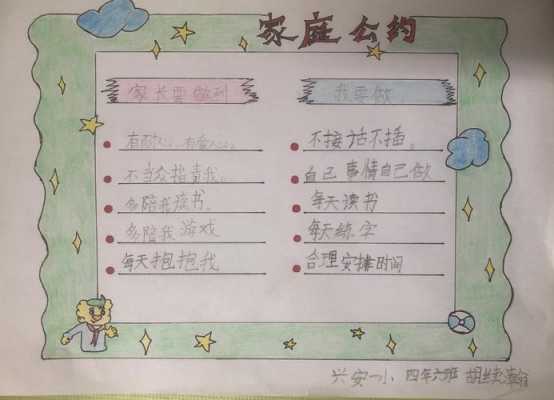 家庭公约
家长要做到
有耐心、有爱心。
不当众指责我。
多陪我读书。
多陪我游戏
每天抱抱我
我要做
不接话不插。
自己事情自己做
每天读书
每天练字
合理安排时间
兴安一小 四年六班 胡续瀚